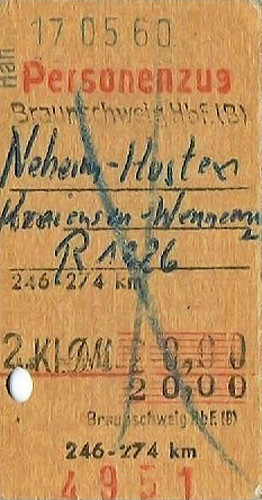 17 05 60
Han
Personenzug
Braunschweig Hbf. (B)
Neheim-Husten
Kreiensen-Wennemen
R 1226
246-274 km
2.Kl. DM 20,00
20.00
Braunschweig Hbf. (B)
246-274 km
4951